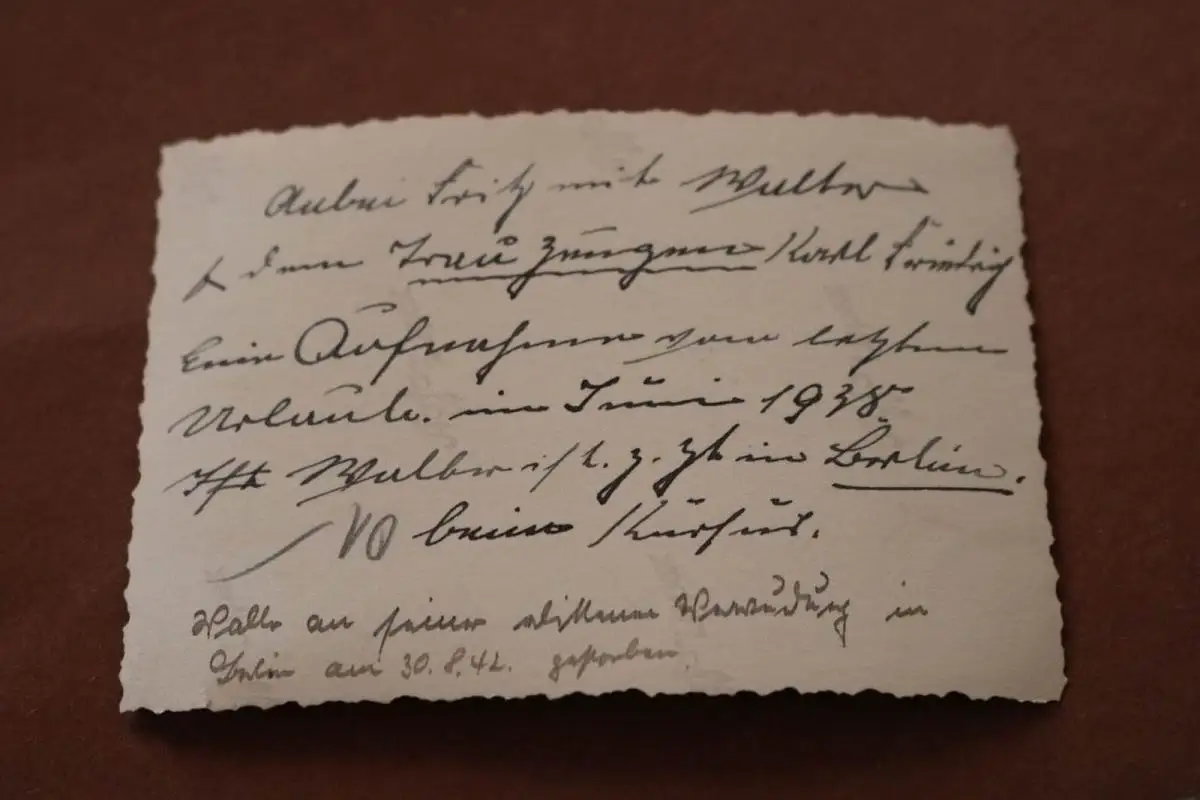 Anbei Fritz mit Walter
& dem Trauzeugen Karl Friedrich
Eine Aufnahme vom letzten
Urlaub. im Juni 1938
Walter ist z. Zt in Berlin.
beim Kursus.
Walter an seiner erlittenen Verwundung in
Berlin am 30.8.42. gestorben.